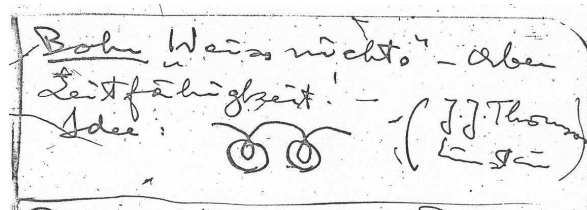 Bohr „Weiss nichts" – Aber
Leitfähigkeit! –
Idee: ( J.J. Thomson
Einstein )